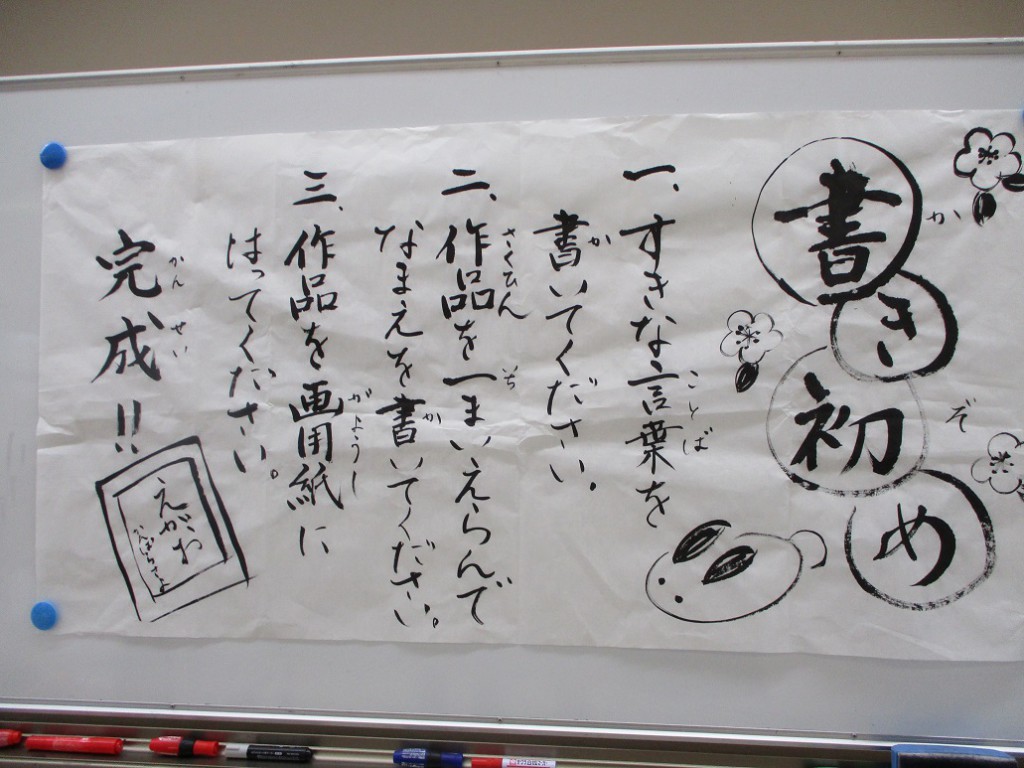 書き初め
一、すきな言葉を
書いてください。
二、作品を一まいえらんで
なまえを書いてください。
三、作品を画用紙に
はってください。
完成!!
えがお